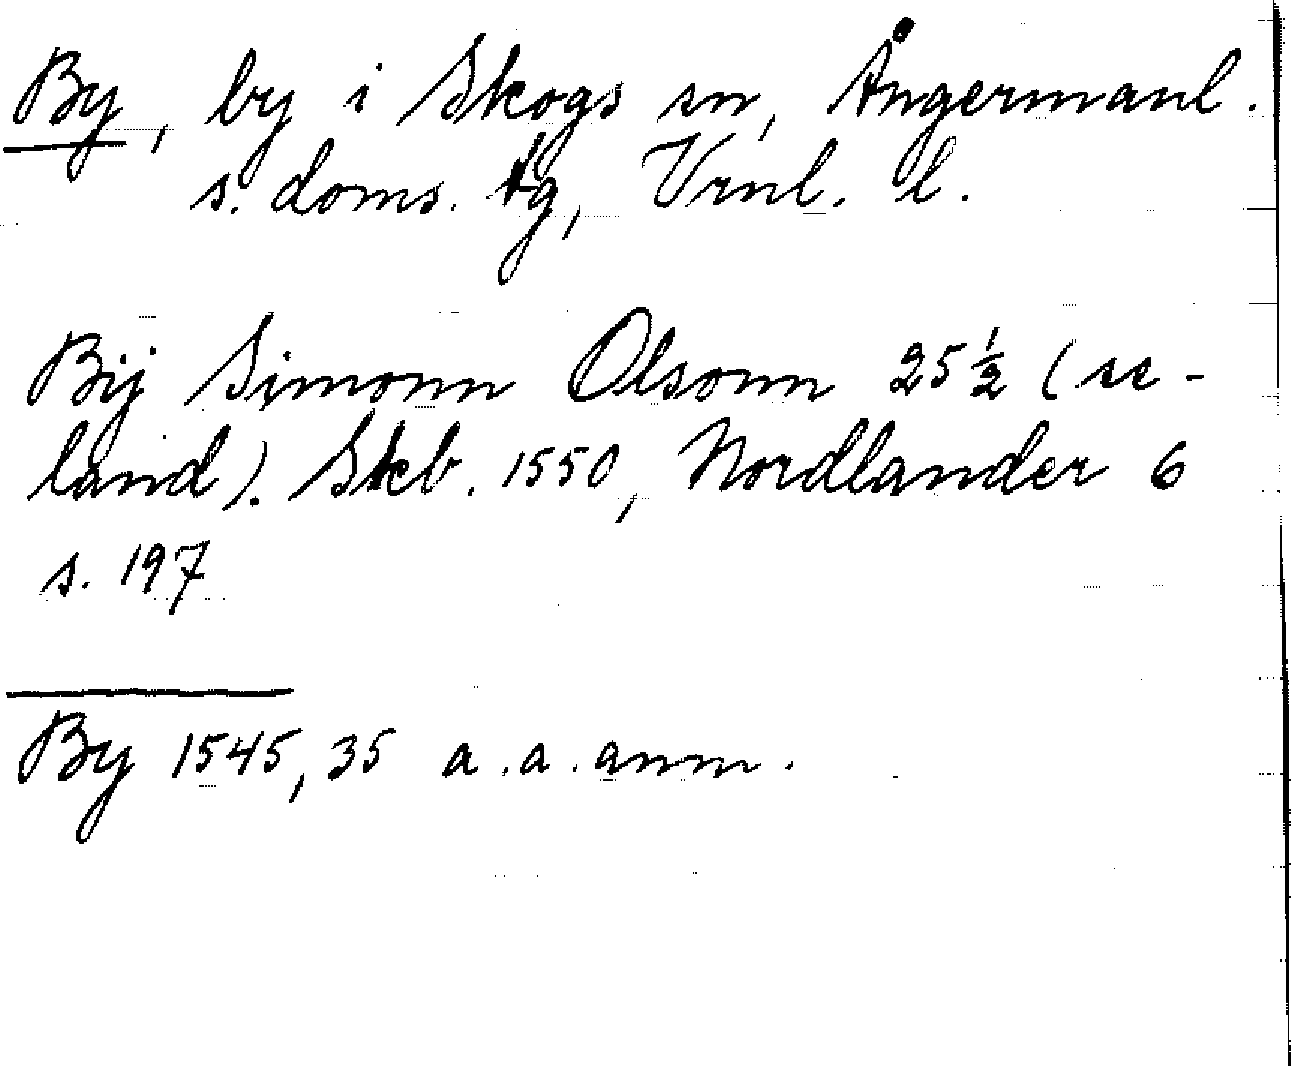 By, by i Skogs sn, Ångermanl.
s. doms. tg, Vrnl. l.
Bij Simonn Olsonn 25½ (se-
land). Skb. 1550, Nordlander 6
s. 197
By 1545, 35 a.a. anm.